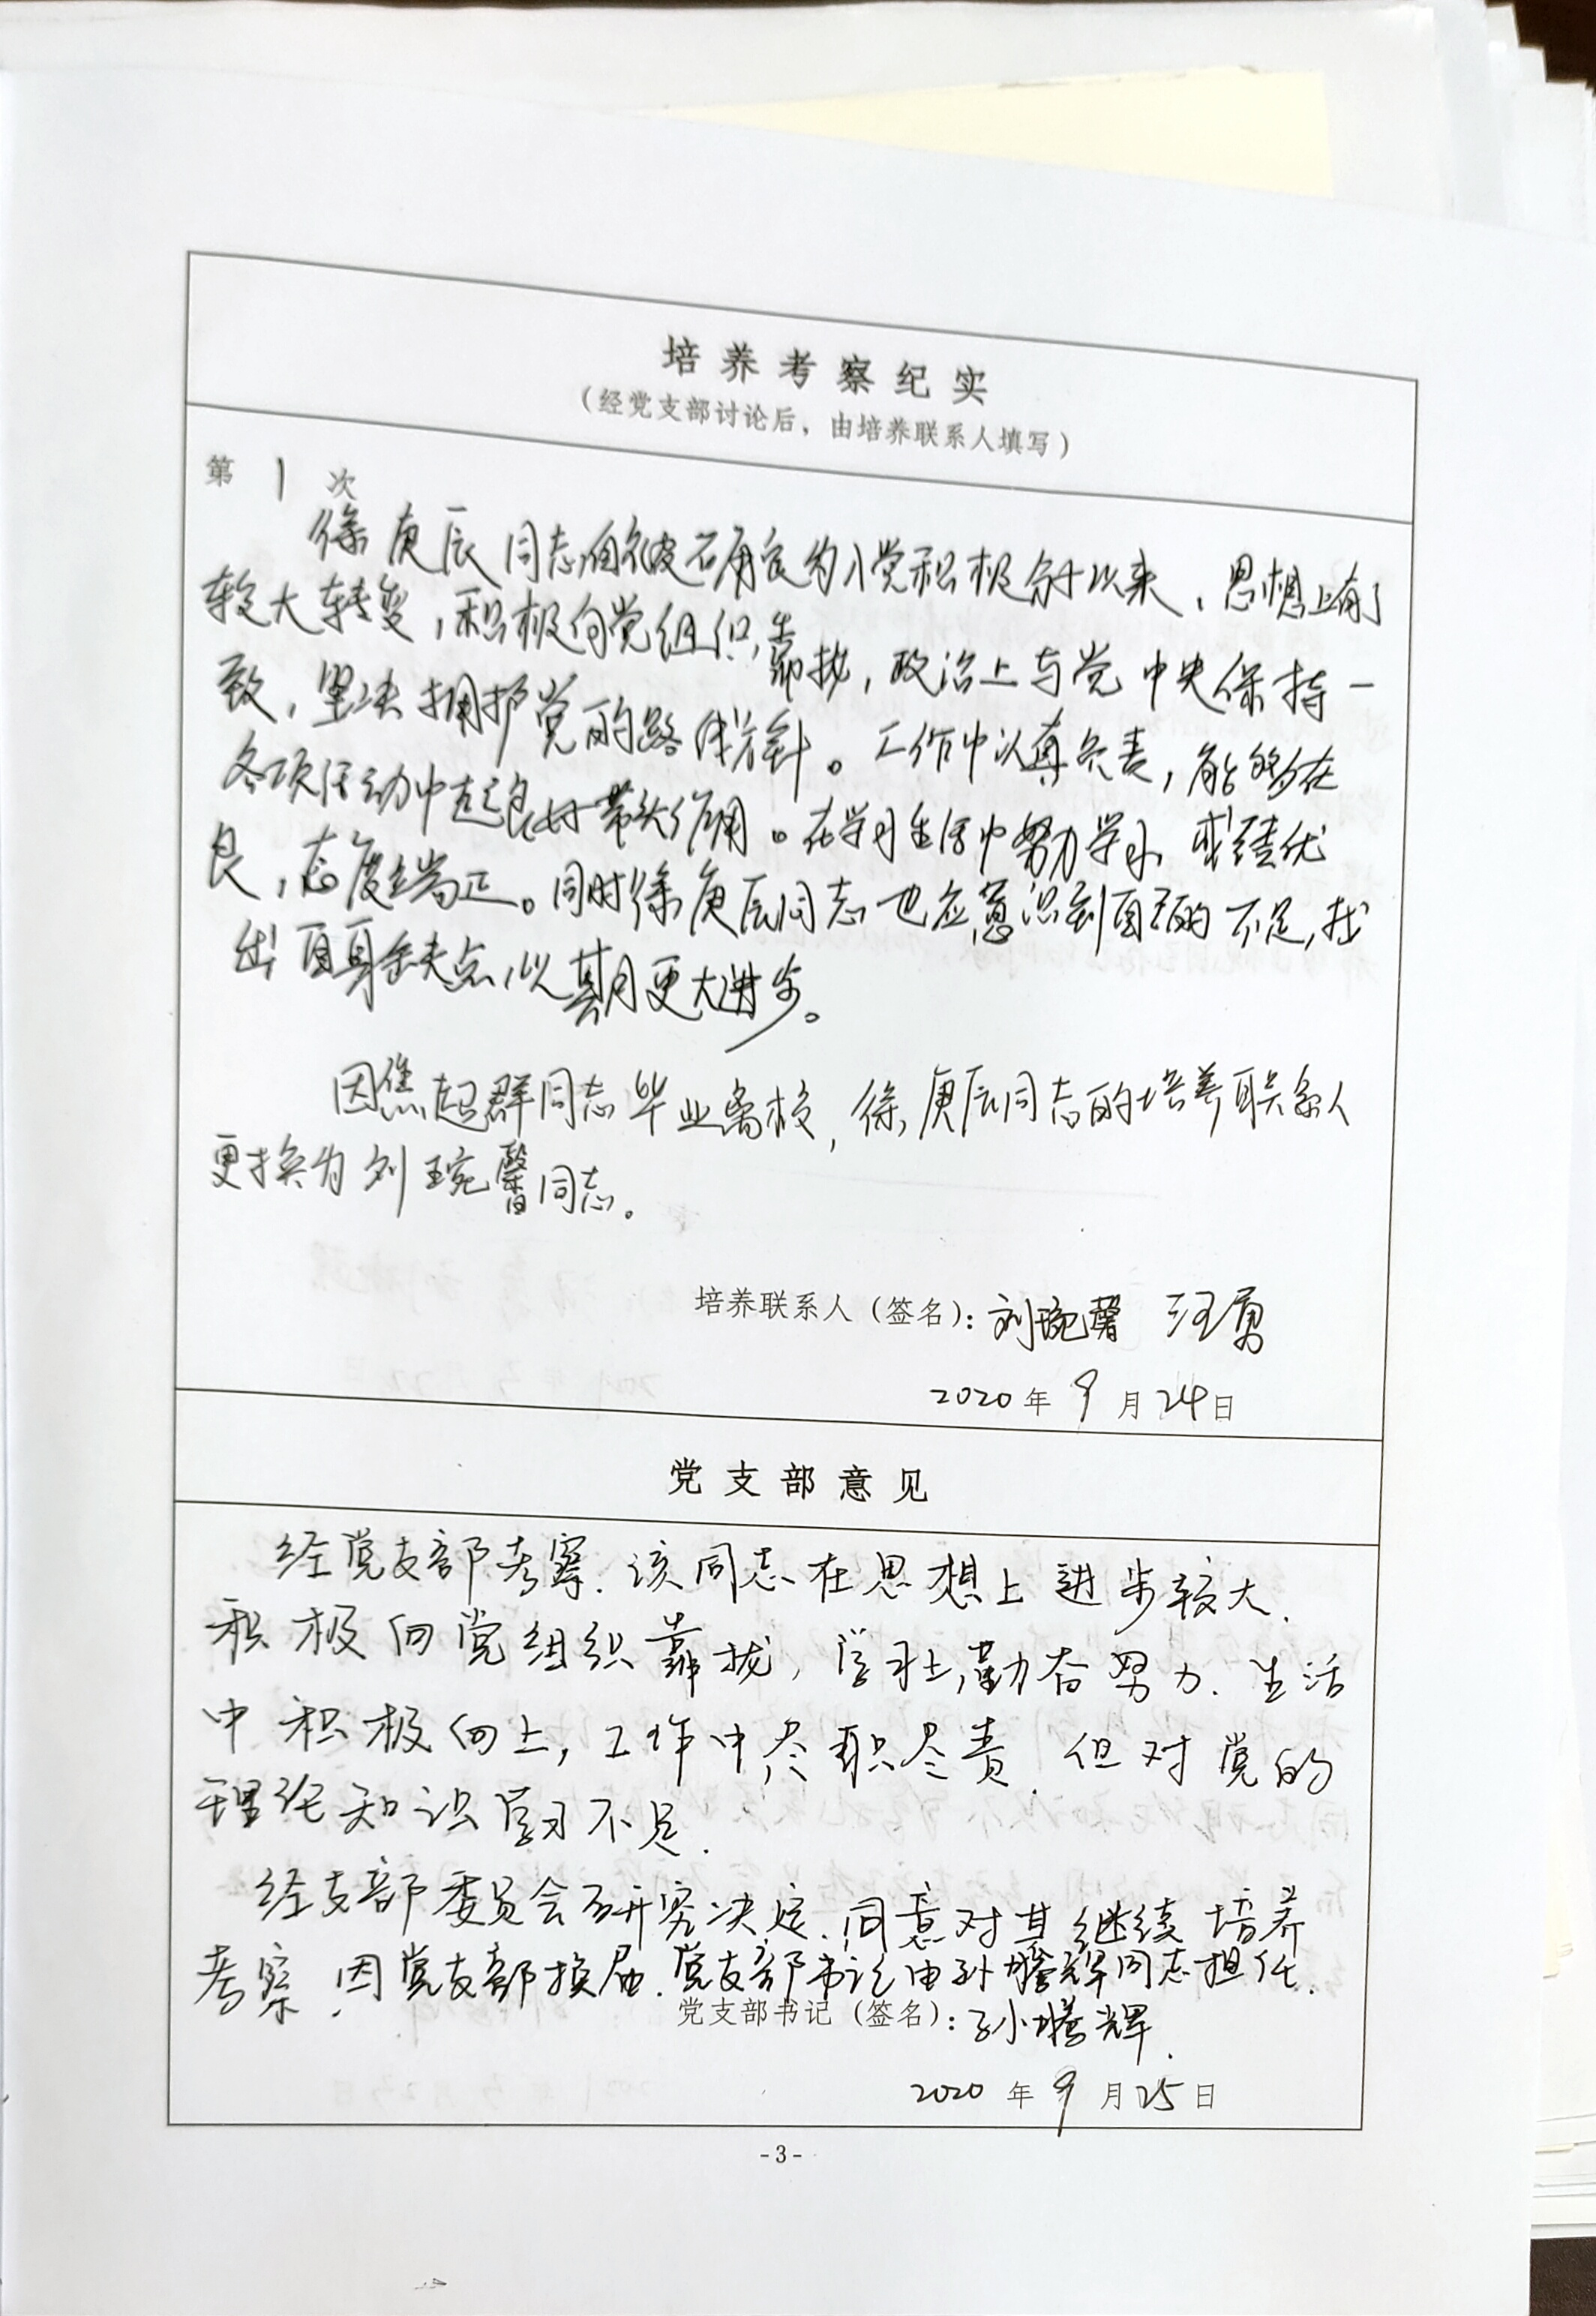 培养考察纪实
（经党支部讨论后，由培养联系人填写）
第 1 次
徐庚辰同志自从被确定为入党积极分子以来，思想上有了
较大转变，积极向党组织靠拢，政治上与党中央保持一
致，坚决拥护党的路线方针。工作中认真负责，能够在
各项活动中起良好带头作用。在学习生活中努力学习，成绩优
良，态度端正。同时徐庚辰同志也应意识到自己的不足，找
出自身缺点，以期更大进步。
因焦起群同志毕业离校，徐庚辰同志的培养联系人
更换为刘琬馨同志。
培养联系人（签名）：刘琬馨 汪勇
2020年9月24日
党支部意见
经党支部考察，该同志在思想上进步较大，
积极向党组织靠拢，学习上勤奋努力，生活
中积极向上，工作中尽职尽责，但对党的
理论知识学习不足.
经支部委员会研究决定，同意对其继续培养
考察，因党支部换届，党支部书记由孙塍辉同志担任.
党支部书记（签名）：孙塍辉.
2020年9月25日
-3-